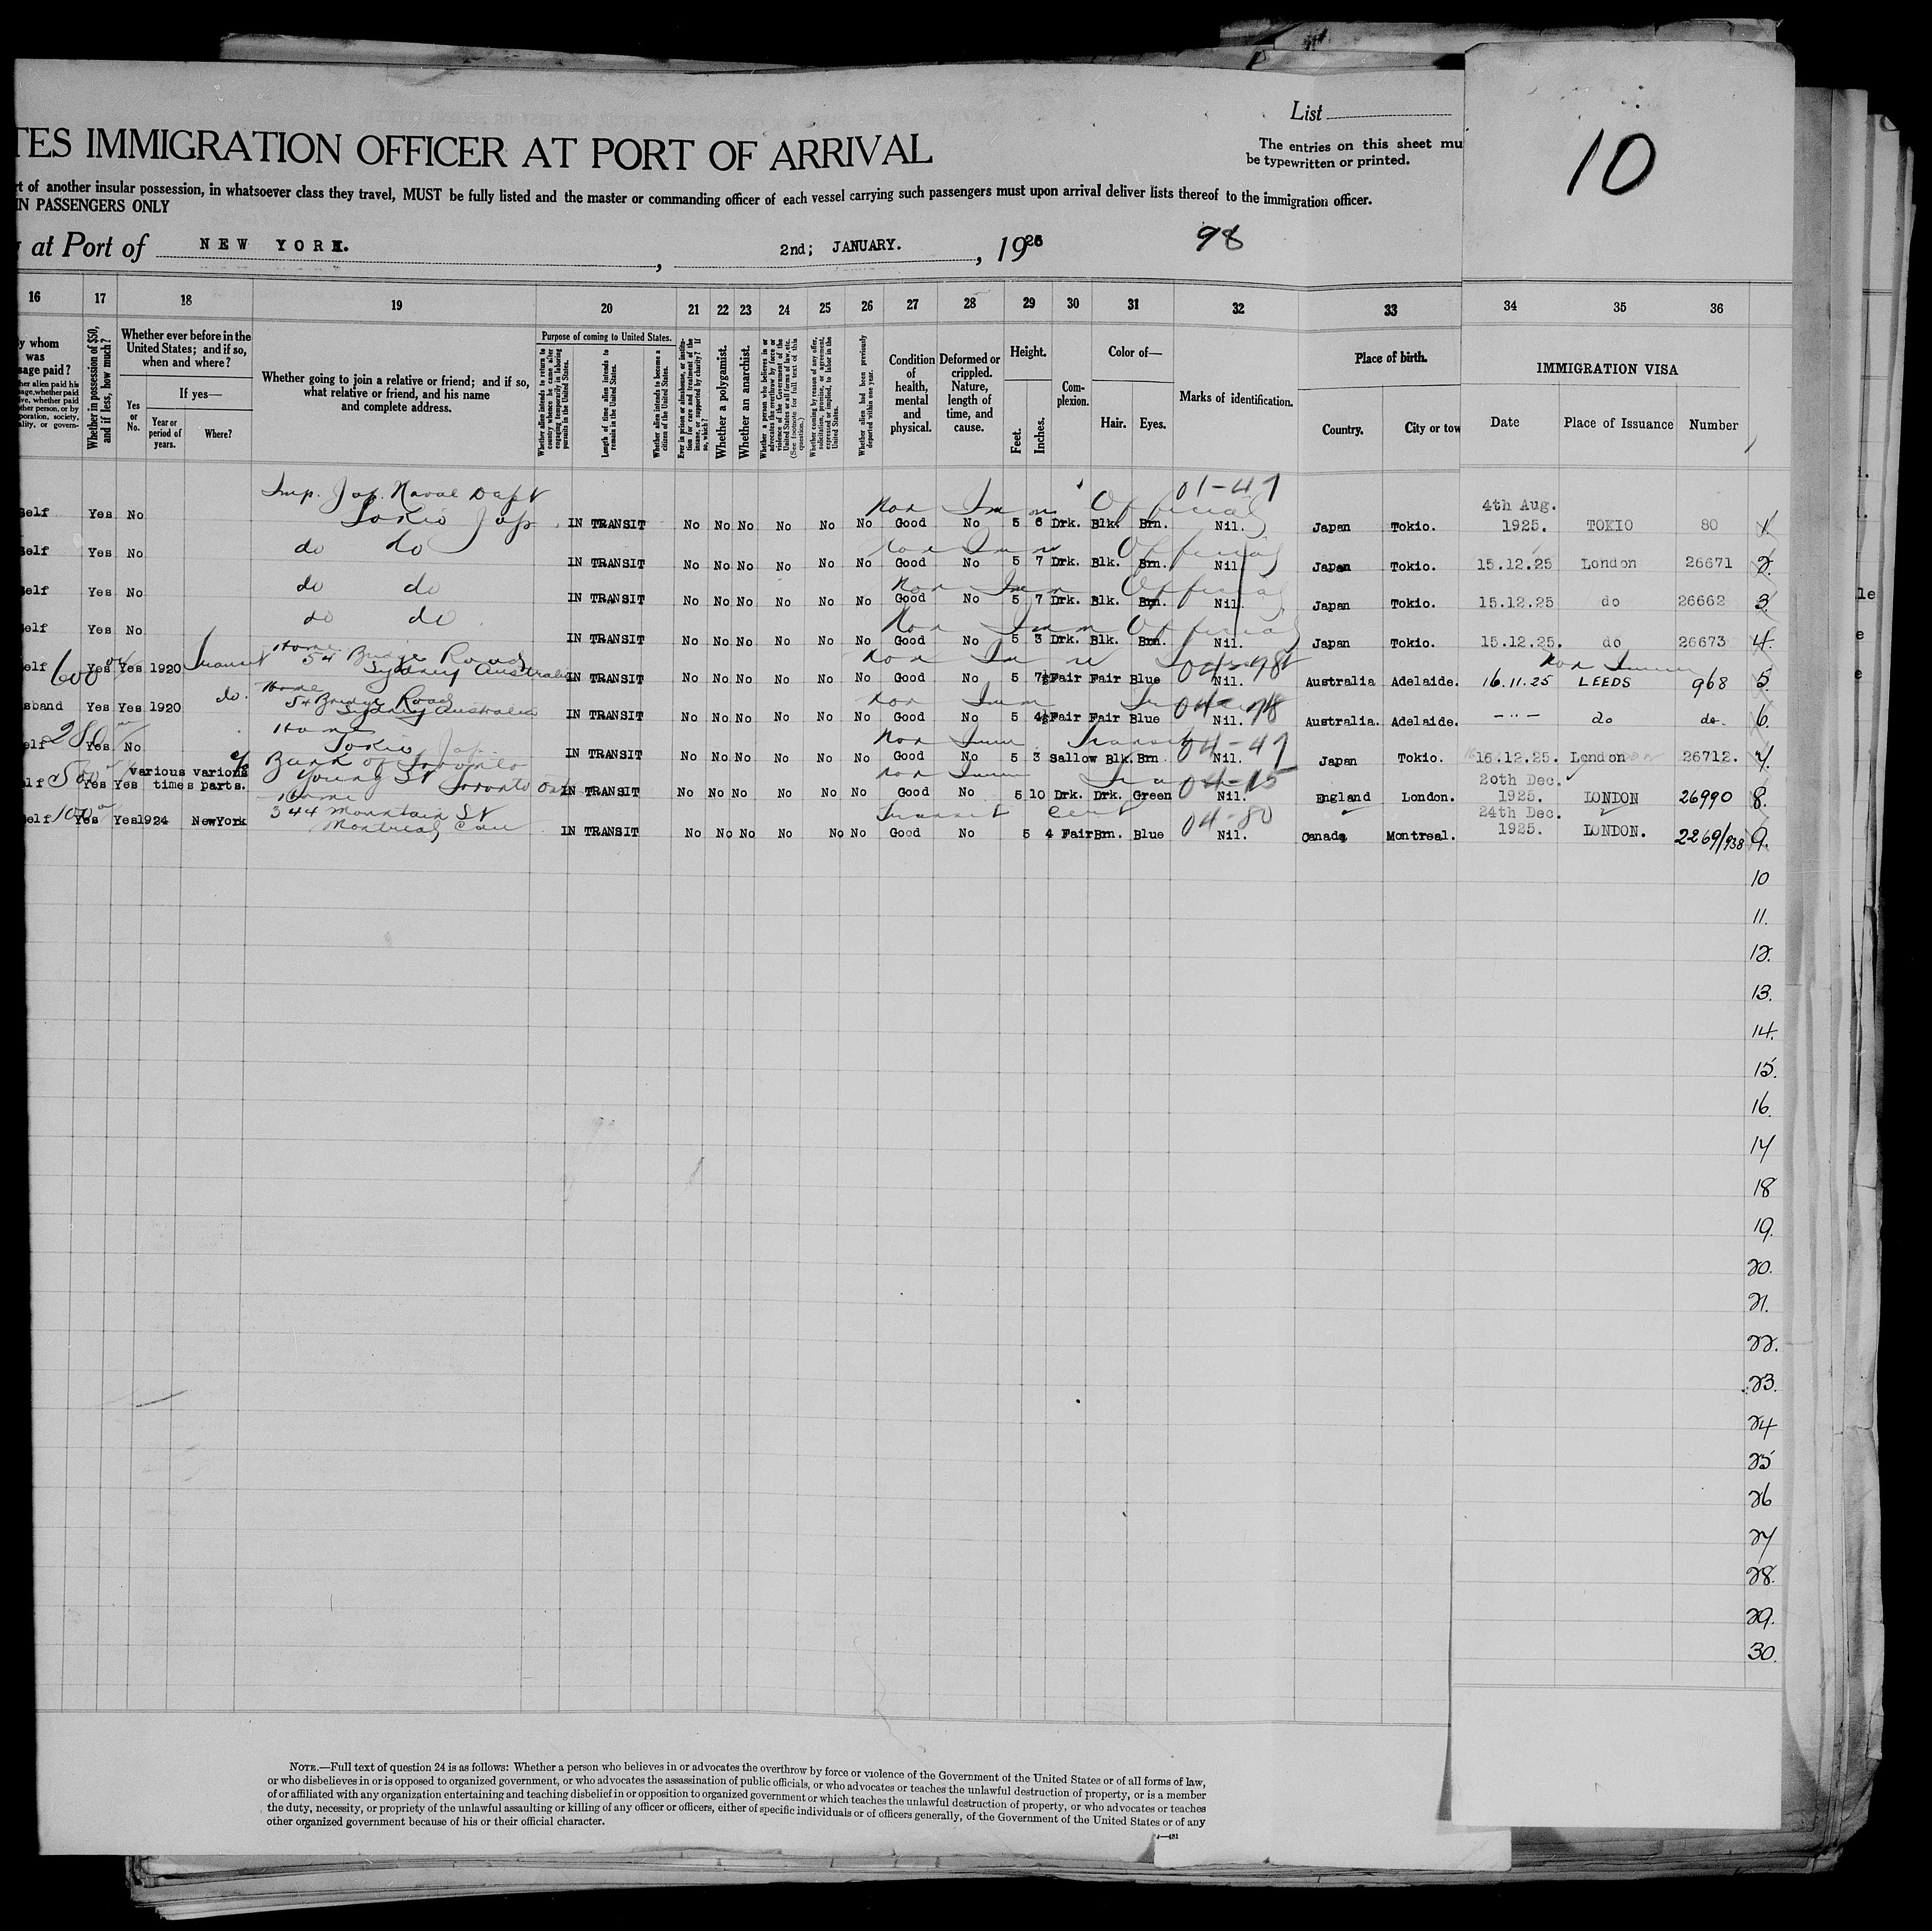 List
The entries on this sheet mu
be typewritten or printed.
10
TES IMMIGRATION OFFICER AT PORT OF ARRIVAL
rt of another insular possession, in whatsoever class they travel, MUST be fully listed and the master or commanding officer of each vessel carrying such passengers must upon arrival deliver lists thereof to the immigration officer.
IN PASSENGERS ONLY
at Port of NEW YORK. , 2nd; JANUARY. , 1926 98
16 17 18 19 20 21 22 23 24 25 26 27 28 29 30 31 32 33 34 35 36
y whom
was
sage paid?
Whether in possession of $50, and if less, how much?
Whether ever before in the
United States; and if so,
when and where?
Yes
or
No.
If yes—
Year or
period of
years.
Where?
Whether going to join a relative or friend; and if so,
what relative or friend, and his name
and complete address.
Purpose of coming to United States.
Whether alien intends to return to country whence he came after engaging temporarily in laboring pursuits in the United States.
Length of time alien intends to remain in the United States.
Whether alien intends to become a citizen of the United States.
Ever in prison or almshouse, or institution for care and treatment of the insane, or supported by charity? If so, which?
Whether a polygamist.
Whether an anarchist.
Whether a person who believes in or advocates the overthrow by force or violence of the Government of the United States or all forms of law, etc. (See footnote for full text of this question.)
Whether coming by reason of any offer, solicitation, promise, or agreement, expressed or implied, to labor in the United States.
Whether alien had been previously deported within one year.
Condition
of
health,
mental
and
physical.
Deformed or
crippled.
Nature,
length of
time, and
cause.
Height.
Feet.
Inches.
Com-
plexion.
Color of—
Hair. Eyes.
Marks of identification.
Place of birth.
Country. City or tow
IMMIGRATION VISA
Date Place of Issuance Number
Imp. Jap. Naval Dept Non Imm Official 01-47 4th Aug.
Self Yes No Tokio Jap IN TRANSIT No No No No No No Good No 5 6 Drk. Blk. Brn. Nil. Japan Tokio. 1925. TOKIO 80 1.
do do Non Imm Official
Self Yes No IN TRANSIT No No No No No No Good No 5 7 Drk. Blk. Brn. Nil. Japan Tokio. 15.12.25 London 26671 2.
do do Non Imm Official
Self Yes No IN TRANSIT No No No No No No Good No 5 7 Drk. Blk. Brn. Nil. Japan Tokio. 15.12.25 do 26662 3.
do do Non Imm Official
Self Yes No IN TRANSIT No No No No No No Good No 5 3 Drk. Blk. Brn. Nil. Japan Tokio. 15.12.25. do 26673 4.
Home 54 Bridge Road Non Imm Non Imm
elf 600 Yes Yes 1920 Transit Sydney Australia IN TRANSIT No No No No No No Good No 5 7½ Fair Fair Blue Nil. Australia Adelaide. 16.11.25 LEEDS 968 5.
Home 54 Bridge Road Non Imm
sband Yes Yes 1920 do. Sydney Australia IN TRANSIT No No No No No No Good No 5 4½ Fair Fair Blue Nil. Australia. Adelaide. -"- do do 6.
Home Non Imm Transit 04-47
elf 280 Yes No Tokio Jap. IN TRANSIT No No No No No No Good No 5 3 Sallow Blk. Brn. Nil. Japan Tokio. 16.12.25. London 26712. 7.
c/o Bank of Toronto Non Imm 20th Dec.
lf 500 Yes Yes various times various parts. Young St Toronto Ont IN TRANSIT No No No No No No Good No 5 10 Drk. Drk. Green Nil. England London. 1925. LONDON 26990 8.
Home 344 Mountain St Transit Cert 04-80 24th Dec.
elf 100 Yes Yes 1924 NewYork Montreal Can IN TRANSIT No No No No No No Good No 5 4 Fair Brn. Blue Nil. Canada Montreal. 1925. LONDON. 2269/938 9.
10
11.
12.
13.
14.
15.
16.
17
18
19.
20.
21.
22.
23.
24
25
26
27
28.
29.
30.
NOTE.—Full text of question 24 is as follows: Whether a person who believes in or advocates the overthrow by force or violence of the Government of the United States or of all forms of law,
or who disbelieves in or is opposed to organized government, or who advocates the assassination of public officials, or who advocates or teaches the unlawful destruction of property, or is a member
of or affiliated with any organization entertaining and teaching disbelief in or opposition to organized government or which teaches the unlawful destruction of property, or who advocates or teaches
the duty, necessity, or propriety of the unlawful assaulting or killing of any officer or officers, either of specific individuals or of officers generally, of the Government of the United States or of any
other organized government because of his or their official character.